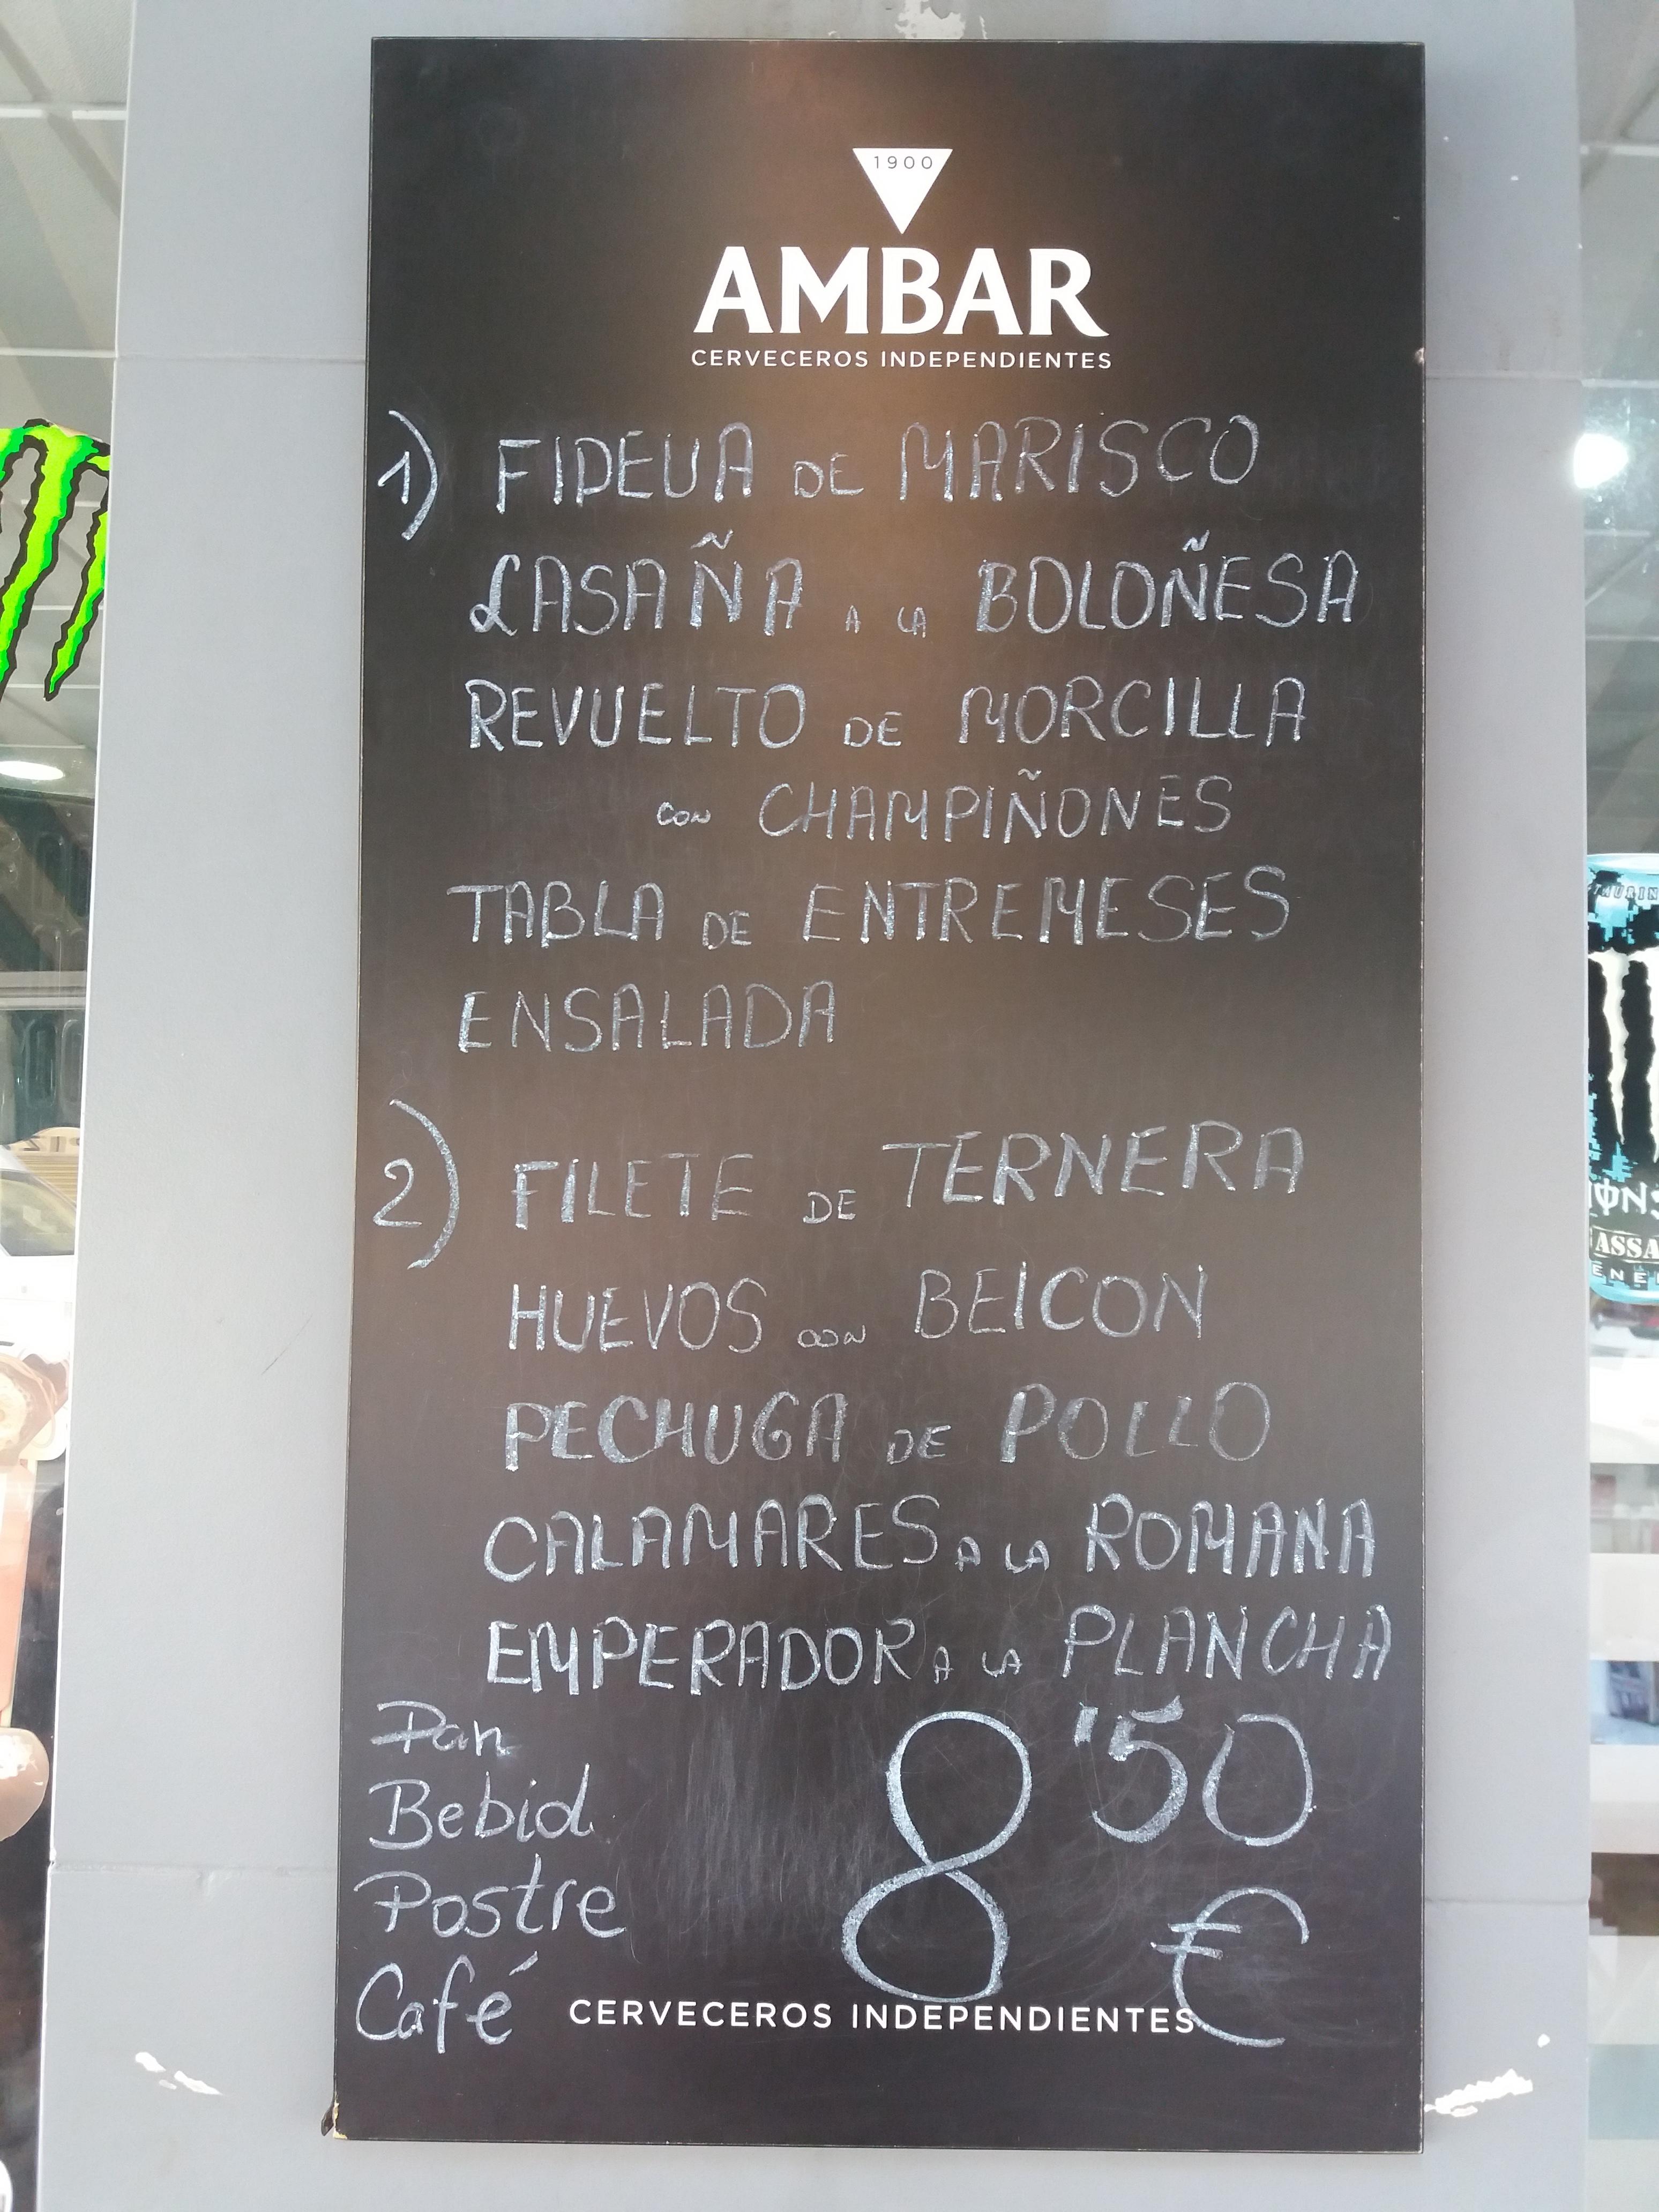 1900
AMBAR
CERVECEROS INDEPENDIENTES
1) FIDEUA DE MARISCO
LASAÑA A LA BOLOÑESA
REVUELTO DE MORCILLA
CON CHAMPIÑONES
TABLA DE ENTREMESES
ENSALADA
2) FILETE DE TERNERA
HUEVOS CON BEICON
PECHUGA DE POLLO
CALAMARES A LA ROMANA
EMPERADOR A LA PLANCHA
Pan
Bebid
Postre
Café
8'50
€
CERVECEROS INDEPENDIENTES
ASSA